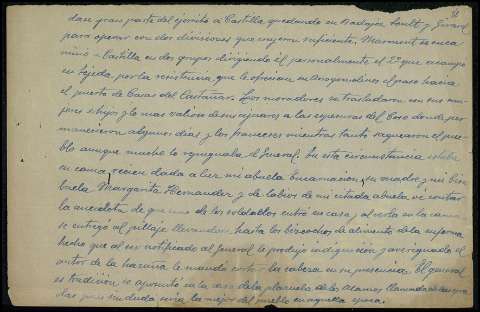 31
dase gran parte del ejército a Castilla, quedando en Badajoz Soult y Girard
para operar con dos divisiones que creyeron suficiente. Marmont se enca
minó a Castilla en dos grupos dirigiendo él personalmente el 2º que acampó
en Tejeda por la resistencia que le ofrecían en el paso hacia
el puerto de Casas del Castañar. Los moradores se trasladaron con sus mu-
jeres e hijos y lo mas valioso de sus ajuares a las espesuras del Coso donde per-
manecieron algunos días y los franceses mientras tanto saquearon el pue-
blo aunque mucho lo repugnaba el General. En esta circunstancia estaba
en cama, recien dada a luz mi abuela Encarnación, su madre y mi bisa
buela Margarita Hernandez y de labios de mi citada abuela oí contar
la anécdota de que uno de los soldados entró en casa y al verla en la cama
se entregó al pillaje llevandose hasta los bizcochos de alimento de la enferma
hecho que al ser notificado al General le produjo indignación y averiguado el
autor de la hazaña le mandó cortar la cabeza en su presencia. El general
es tradición se aposentó en la casa de la plazuela de los Alamos llamada de
que sin duda sería la mejor del pueblo en aquella época.